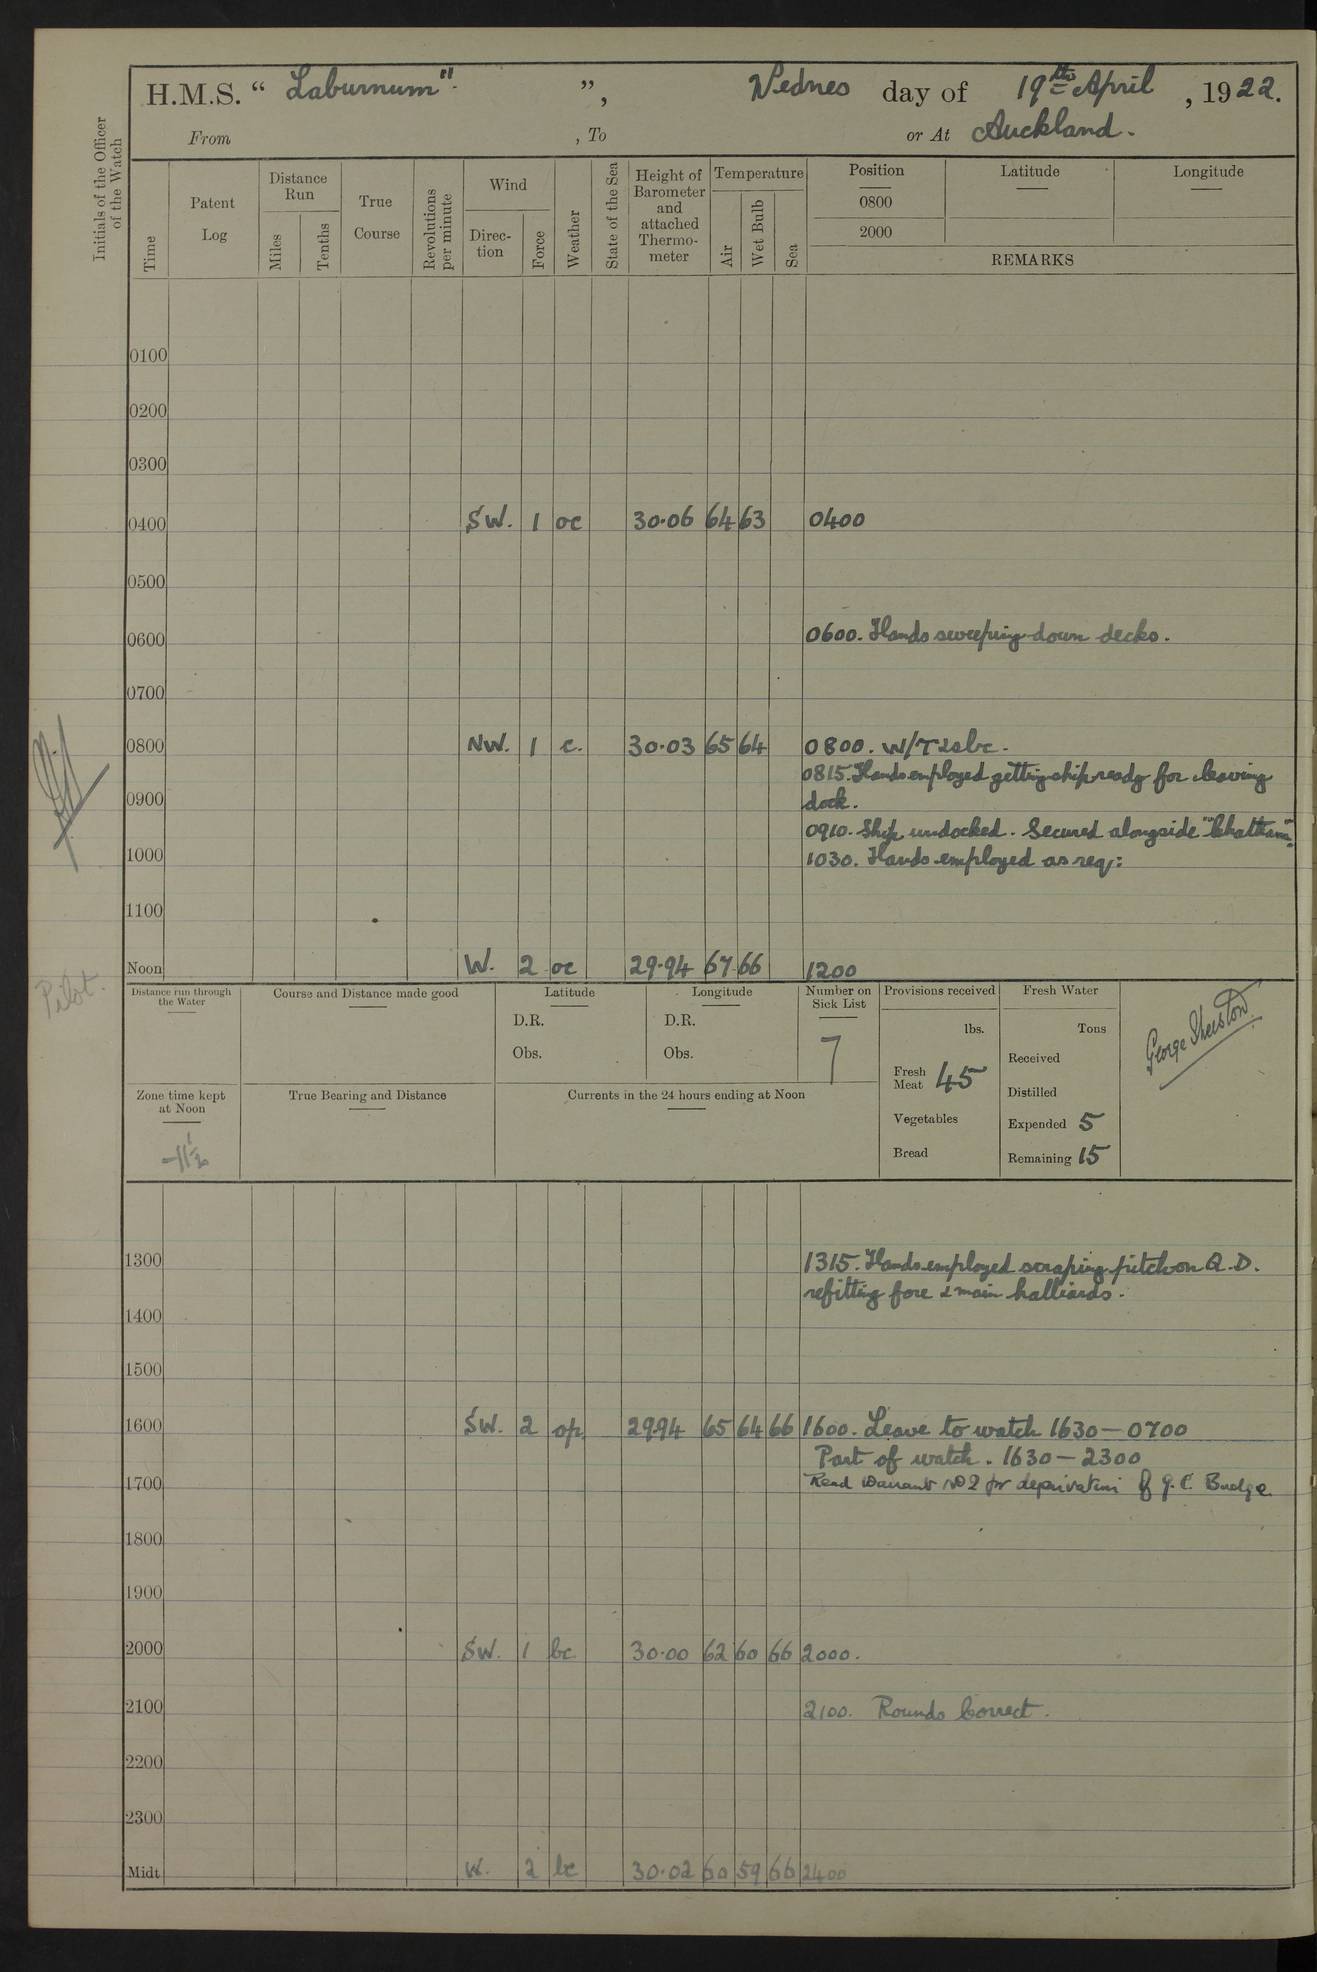 H.M.S. “ Laburnum". ”, Wednes day of 19th April , 1922.
From , To or At Auckland.
Initials of the Officer of the Watch
Time
Patent Log
Distance Run
Miles
Tenths
True Course
Revolutions per minute
Wind
Direc-tion
Force
Weather
State of the Sea
Height of Barometer and attached Thermo-meter
Temperature
Air
Wet Bulb
Sea
Position Latitude Longitude
0800
2000
REMARKS
0100
0200
0300
0400 SW. 1 oc 30·06 64 63 0400
0500
0600 0600. Hands sweeping down decks.
0700
0800 NW. 1 c. 30·03 65 64 0800. W/T
0815. Hands employed getting ship ready for leaving
0900 dock.
0910. Ship undocked. Secured alongside "Chatham".
1000 1030. Hands employed as req:
1100
Noon W. 2 oc 29·94 67 66 1200
Pilot.
Distance run through the Water
Course and Distance made good
Latitude
D.R.
Obs.
Longitude
D.R.
Obs.
Number on Sick List
7
Provisions received
lbs.
Fresh Meat 45
Vegetables
Bread
Fresh Water
Tons
Received
Distilled
Expended 5
Remaining 15
George Sherston
Zone time kept at Noon
-11½
True Bearing and Distance
Currents in the 24 hours ending at Noon
1300 1315. Hands employed scraping pitch on Q.D.
refitting fore & main halliards.
1400
1500
1600 SW. 2 op 29.94 65 64 66 1600. Leave to watch 1630 — 0700
Part of watch. 1630 — 2300
1700 Read Warrant No 2 for deprivation of G.C. Badge
1800
1900
2000 SW. 1 bc 30·00 62 60 66 2000.
2100 2100. Rounds Correct.
2200
2300
Midt W. 2 bc 30·02 60 59 66 2400